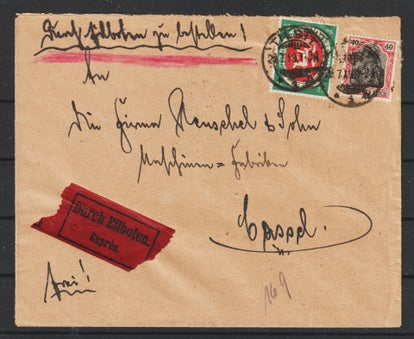 Durch Eilboten zu bestellen!
An
Die Firma Henschel & Sohn
Maschinen-Fabriken
Cassel.
Durch Eilboten.
Exprès.
frei!
169
40 40